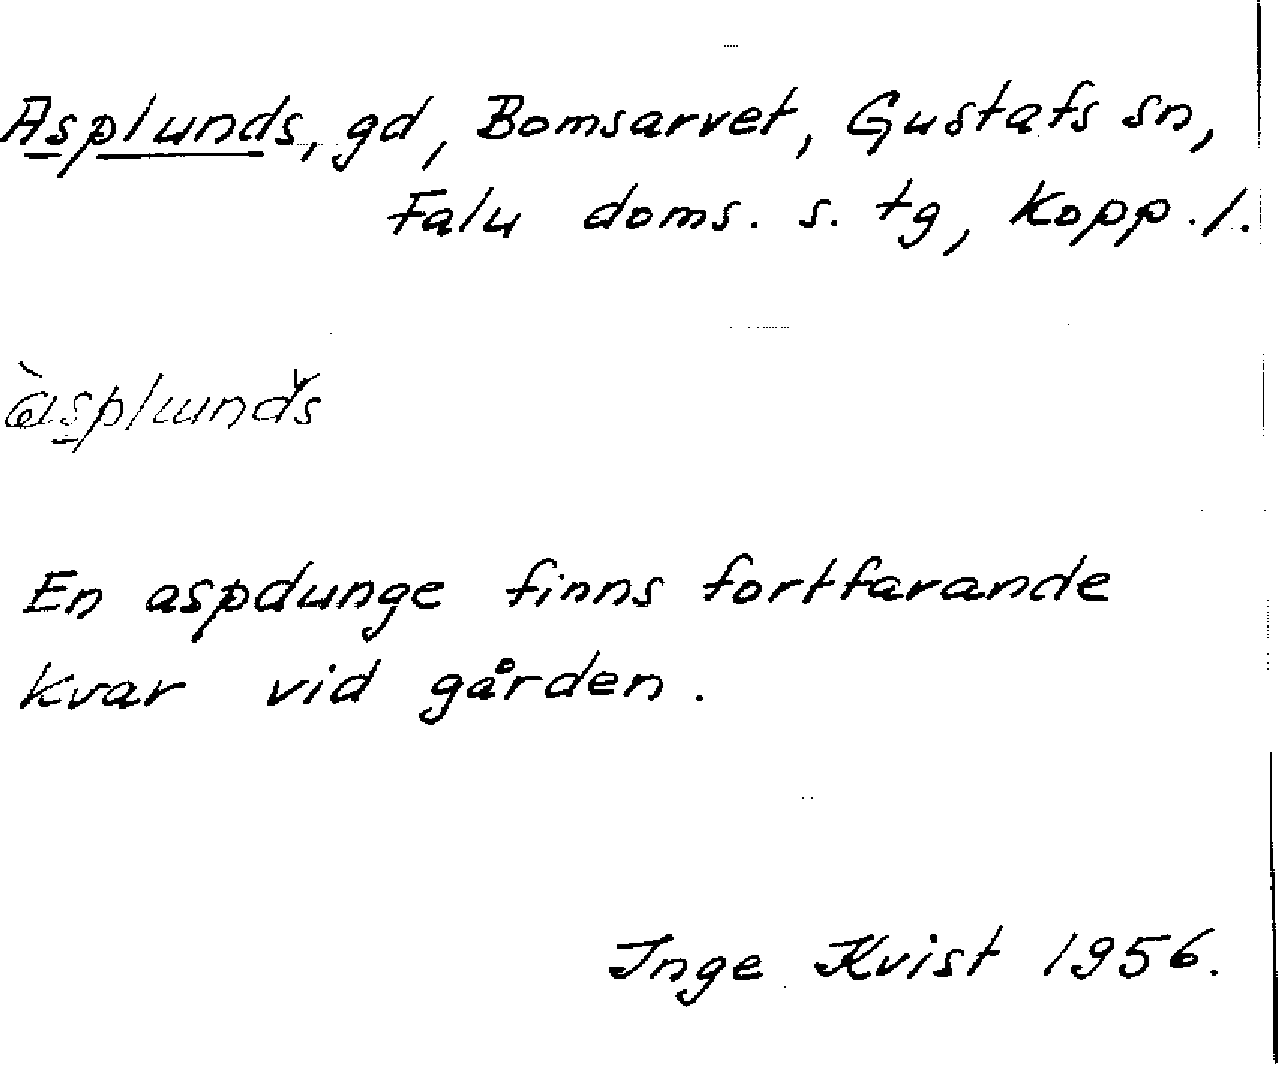 Asplunds, gd, Bomsarvet, Gustafs sn,
Falu doms. s. tg, Kopp. l.
àsplunds
En aspdunge finns fortfarande
kvar vid gården.
Inge Kvist 1956.